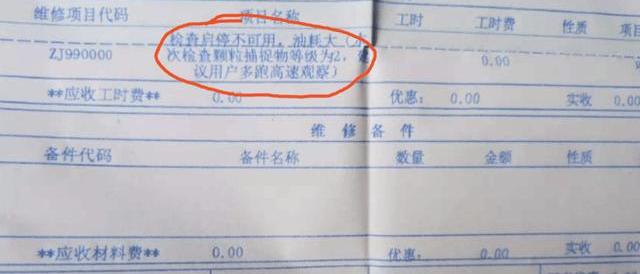 维修项目代码 项目名称 工时 工时费 性质 实收
ZJ990000 检查启停不可用，油耗大（本 0.00
次检查颗粒捕捉物等级为2，建
议用户多跑高速观察）
**应收工时费** 0.00 优惠： 0.00 实收 0.00
维 修 备 件
备件代码 备件名称 数量 金额 性质
**应收材料费** 0.00 优惠： 0.00 实收 0.00